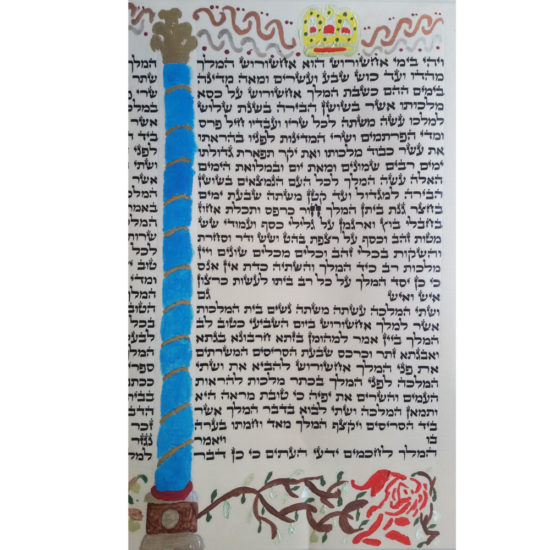 ויהי בימי אחשורוש הוא אחשורוש המלך
מהדו ועד כוש שבע ועשרים ומאה מדינה
בימים ההם כשבת המלך אחשורוש על כסא
מלכותו אשר בשושן הבירה בשנת שלוש
למלכו עשה משתה לכל שריו ועבדיו חיל פרס
ומדי הפרתמים ושרי המדינות לפניו בהראתו
את עשר כבוד מלכותו ואת יקר תפארת גדולתו
ימים רבים שמונים ומאת יום ובמלואת הימים
האלה עשה המלך לכל העם הנמצאים בשושן
הבירה למגדול ועד קטן משתה שבעת ימים
בחצר גנת ביתן המלך חור כרפס ותכלת אחוז
בחבלי בוץ וארגמן על גלילי כסף ועמודי שש
מטות זהב וכסף על רצפת בהט ושש ודר וסחרת
והשקות בכלי זהב וכלים מכלים שונים ויין
מלכות רב כיד המלך והשתיה כדת אין אנס
כי כן יסד המלך על כל רב ביתו לעשות כרצון
איש ואיש גם
ושתי המלכה עשתה משתה נשים בית המלכות
אשר למלך אחשורוש ביום השביעי כטוב לב
המלך ביין אמר למהומן בזתא חרבונא בגתא
ואבגתא זתר וכרכס שבעת הסריסים המשרתים
את פני המלך אחשורוש להביא את ושתי
המלכה לפני המלך בכתר מלכות להראות
העמים והשרים את יפיה כי טובת מראה היא
ותמאן המלכה ושתי לבוא בדבר המלך אשר
ביד הסריסים ויקצף המלך מאד וחמתו בערה
בו ויאמר
המלך לחכמים ידעי העתים כי כן דבר
המלך
שתר
שרי
אשר
ביד
לפני
ושתי
המלך